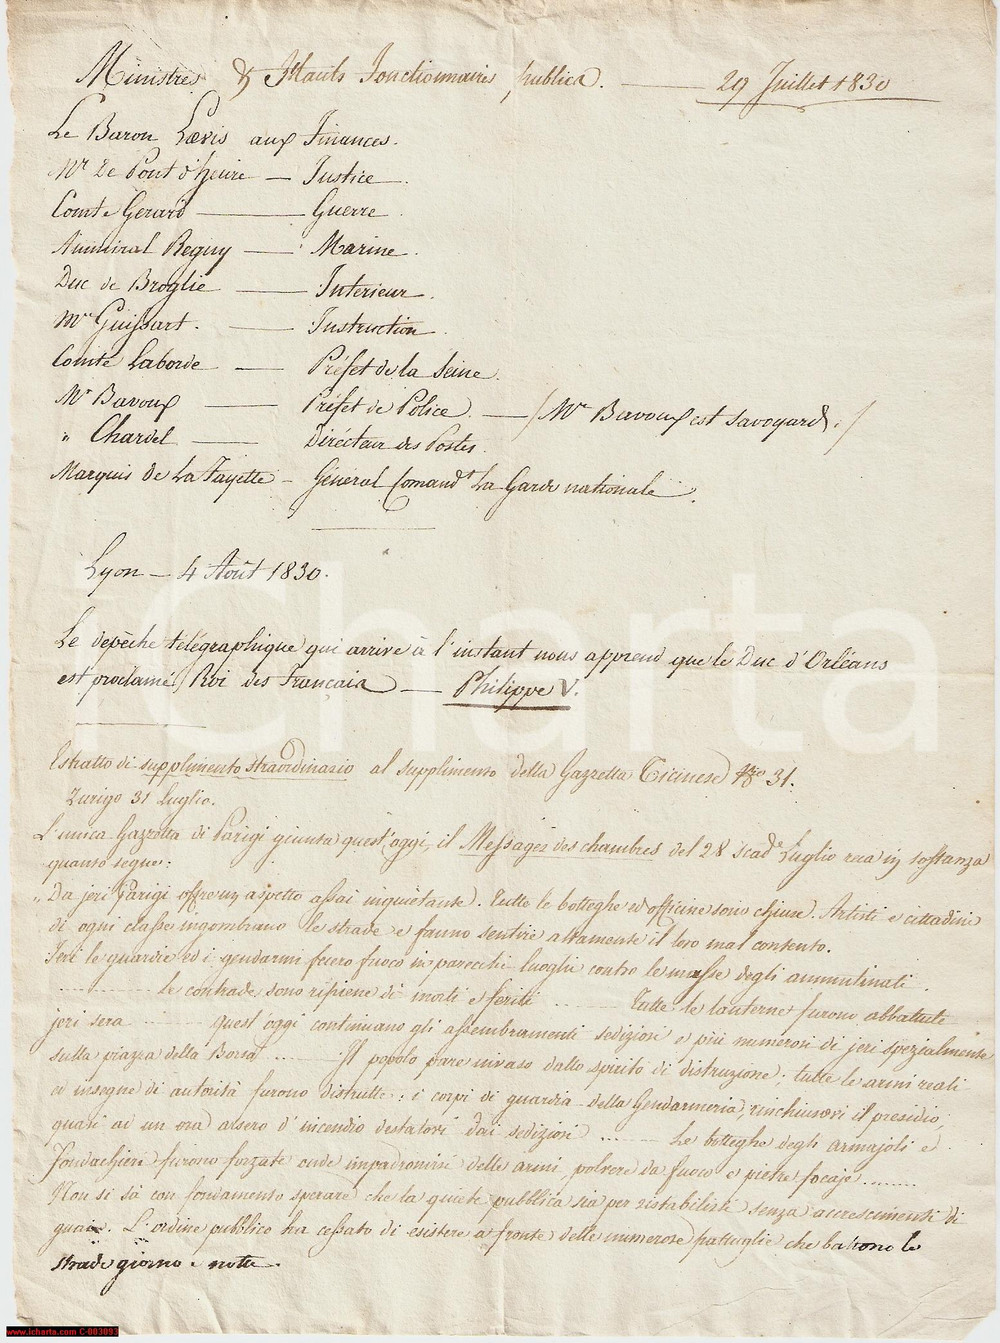 Ministres & Hauts Fonctionnaires publica. — 29 Juillet 1830
Le Baron Lovis aux Finances.
Mr De Pont d'heure — Justice.
Comte Gerard — Guerre.
Ammiral Regny — Marine.
Duc de Broglie — Interieur.
Mr Guissart. — Instruction.
Comte Laborde — Préfet de la Seine.
Mr Bavoux — Préfet de Police. — /Mr Bavoux est Savoyard./
" Chardel — Directeur des Postes.
Marquis de La Fayette — Général Comandt La Garde nationale.
Lyon — 4 Août 1830.
Le depèche télégraphique qui arrive à l'instant nous apprend que le Duc d'Orléans
est proclamé Roi des Francais — Philippe V.
Estratto di supplimento straordinario al supplimento della Gazzetta Ticinese No 31.
Zurigo 31 Luglio.
L'unica Gazzetta di Parigi giunta quest'oggi, il Messager des chambres del 28 scade Luglio reca in sostanza
quanto segue:
"Da jeri Parigi offre un aspetto assai inquietante. Tutte le botteghe ed officine sono chiuse. Artisti e cittadini
di ogni classe ingombrano le strade e fanno sentire altamente il loro mal contento.
Jeri le guardie ed i gendarmi fecero fuoco in parecchi luoghi contro le masse degli ammutinati.
.......... le contrade sono ripiene di morti e feriti ........ Tutte le lanterne furono abbattute
jeri sera ...... quest'oggi continuano gli assembramenti sediziosi e più numerosi di jeri spezialmente
sulla piazza della Borsa ........ Il popolo pare invaso dallo spirito di distruzione; tutte le armi reali
ed insegne di autorità furono distrutte: i corpi di guardia della Gendarmeria, rinchiusovi il presidio,
quasi ad un ora arsero d'incendio destatovi dai sediziosi ........ Le botteghe degli armajoli e
fondachieri furono forzate onde impadronirsi delle armi, polvere da fuoco e pietre focaje ........
Non si sà con fondamento sperare che la quiete pubblica sia per ristabilirsi senza accrescimenti di
guai. L'ordine pubblico ha cessato di esistere a fronte delle numerose pattuglie che battono le
strade giorno e notte.
iCharta
www.icharta.com C-003093